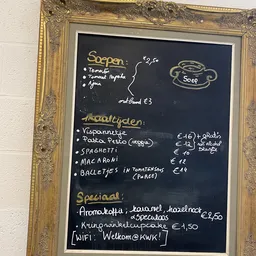 Soepen: €2,50
• Tomaat
• Tomaat Paprika
• Ajuin
SOUP
met brood €3
Maaltijden:
• Vispannetje €16 + gratis
• Pasta Pesto (veggie) €12
• SPAGHETTI €10
• MACARONI €12
• BALLETJES IN TOMATENSAUS €14
(PUREE)
Speciaal:
• Aromakoffie; karamel, hazelnoot €2,50
& speculaas
• Kringwinkelcupcake €1,50
[WIFI: Welkom@KWK!]